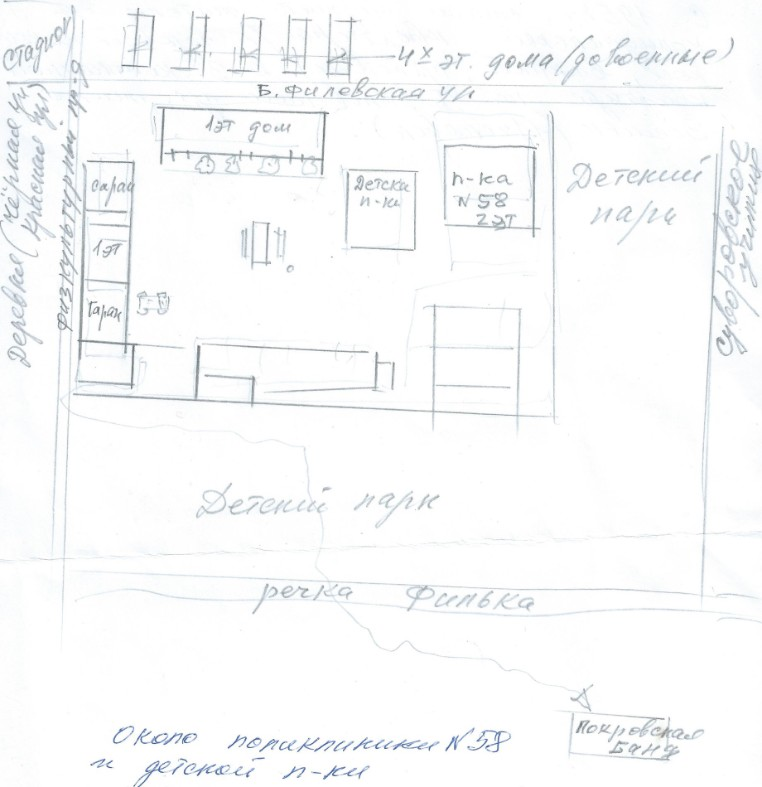 Стадион
4х эт. дома (довоенные)
Б. Филевская ул
Физкультурный пр-д
Деревая (Чёрная ул
Красная ул)
1эт дом
сарай
1эт
Гараж
Детская
п-ка
п-ка
N 58
2эт
Детский
парк
Суворовское
училище
Детский парк
речка Филька
Покровская
Баня
Около поликлиники N 58
и детской п-ки